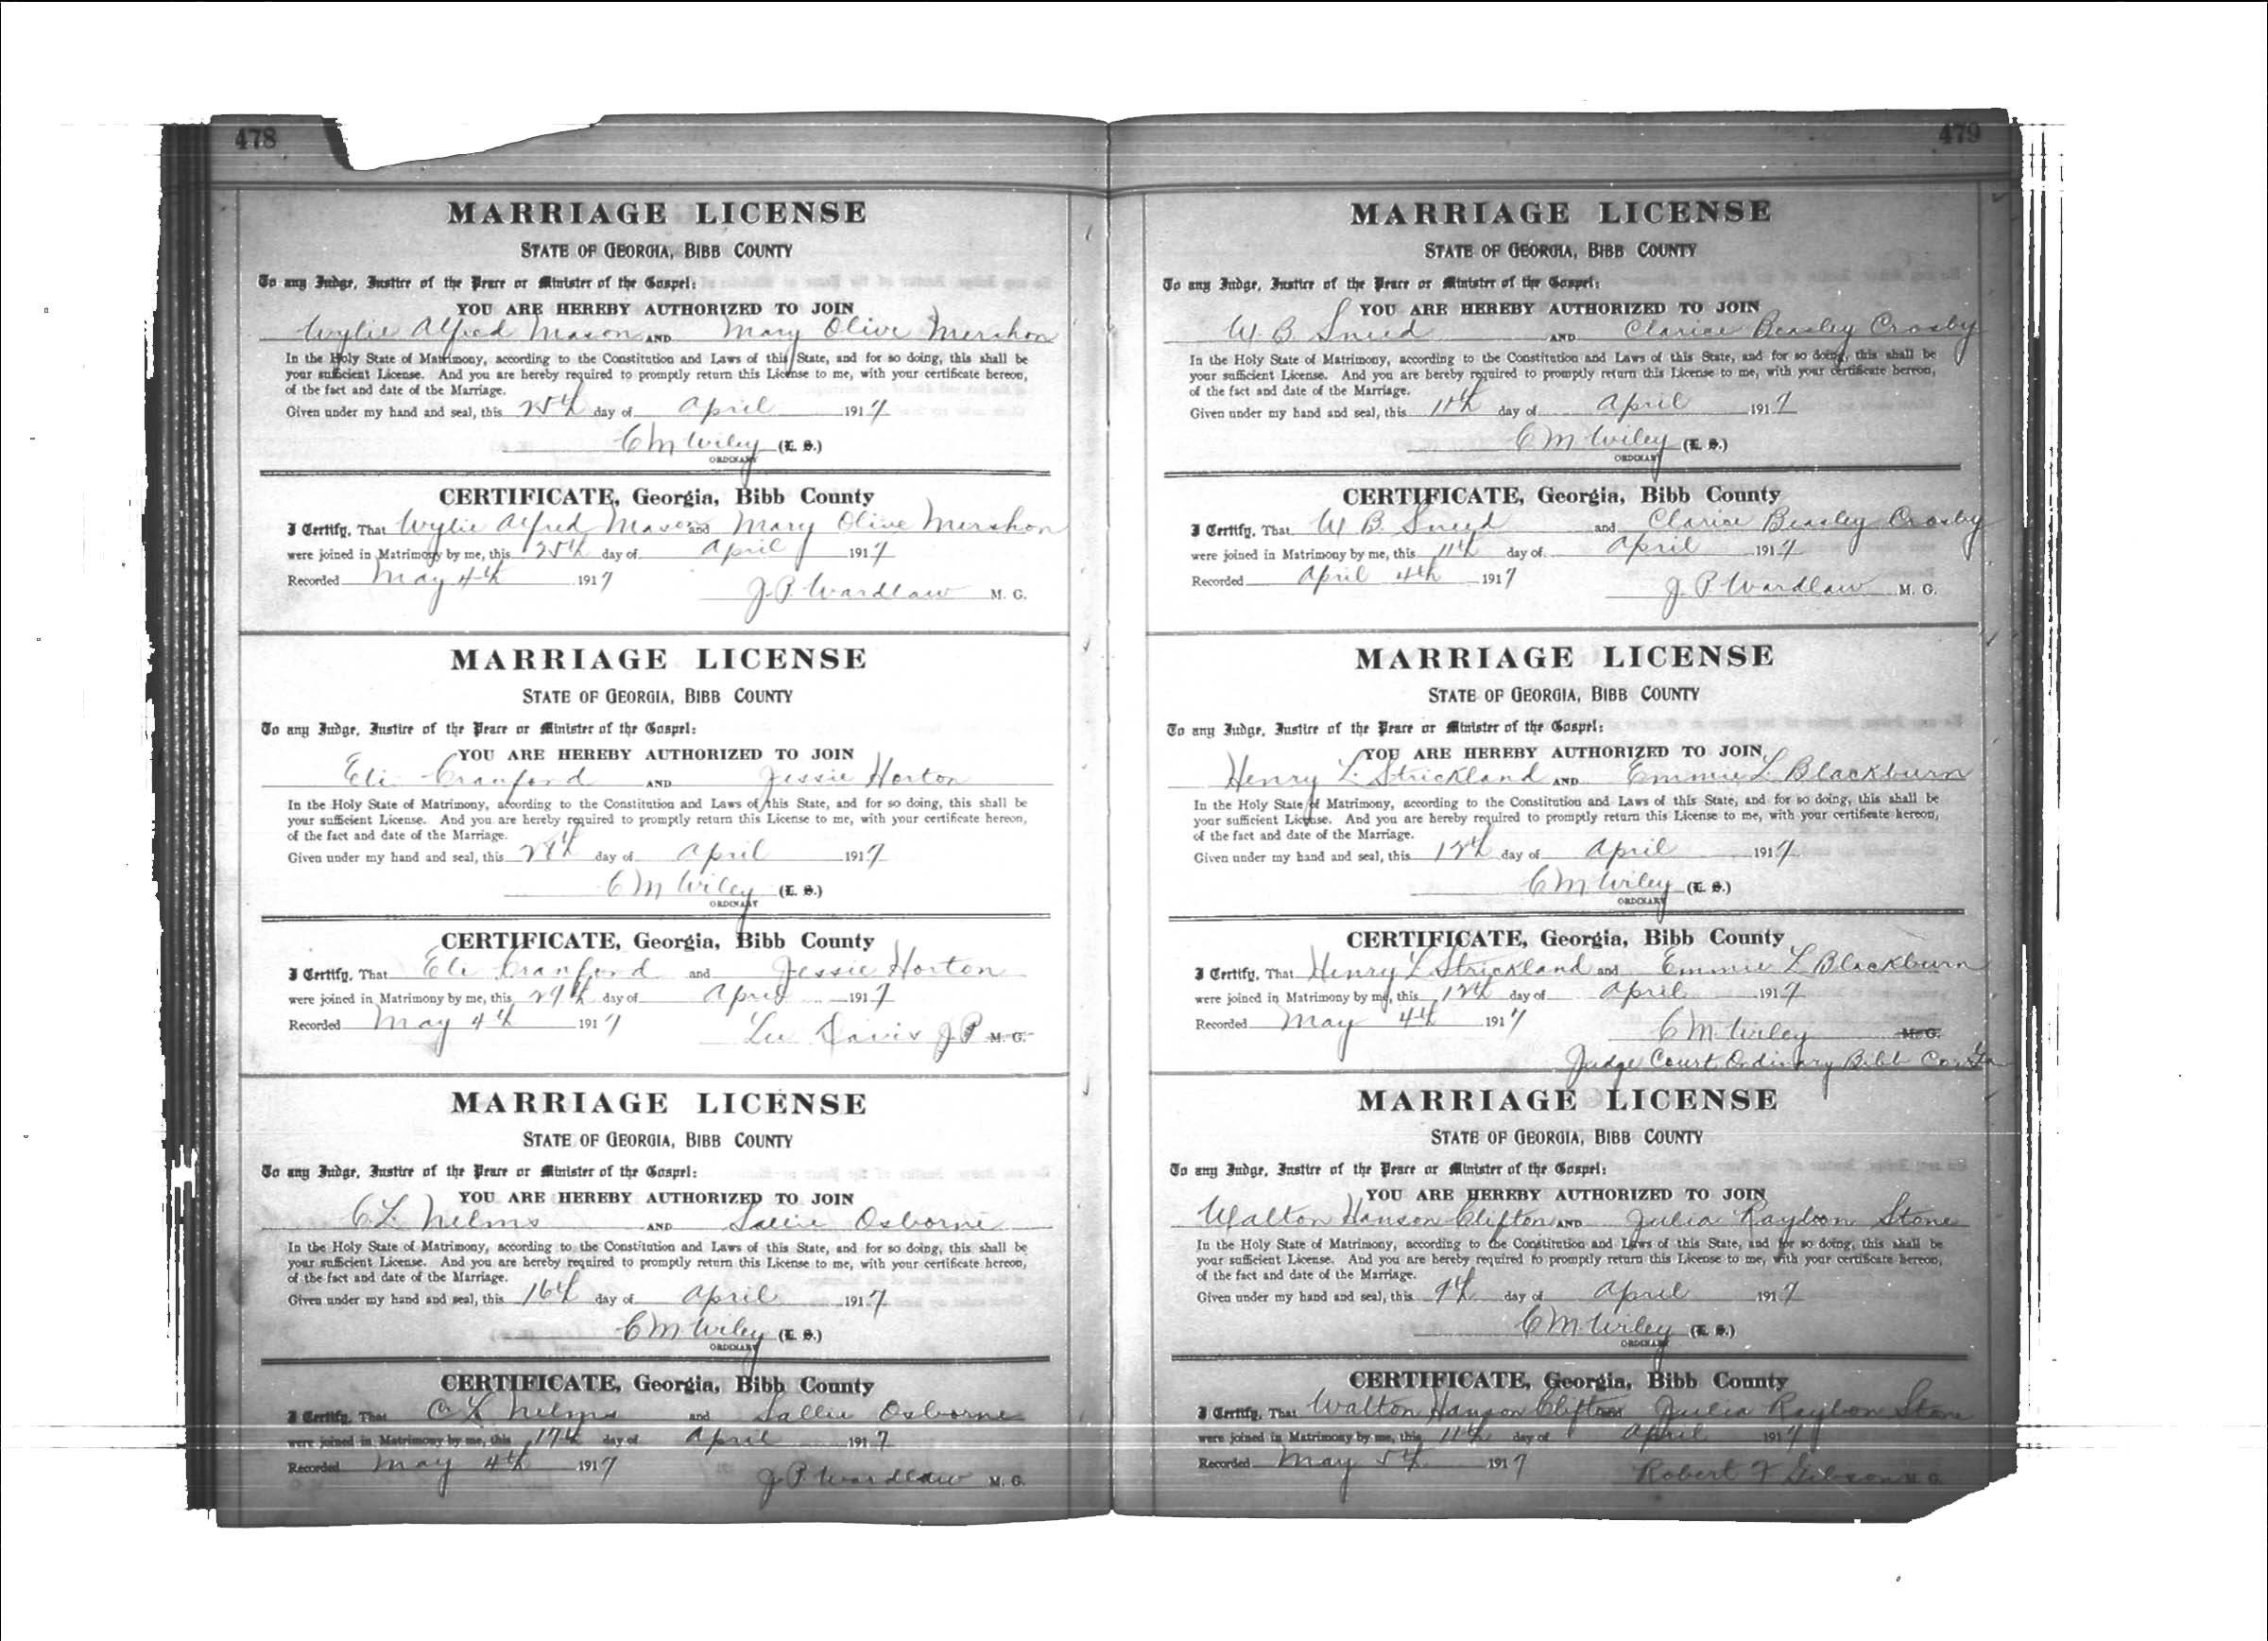 478
MARRIAGE LICENSE
STATE OF GEORGIA, BIBB COUNTY
To any Judge, Justice of the Peace or Minister of the Gospel:
YOU ARE HEREBY AUTHORIZED TO JOIN
Wylie Alfred Mason AND Mary Olive Mershon
In the Holy State of Matrimony, according to the Constitution and Laws of this State, and for so doing, this shall be
your sufficient License. And you are hereby required to promptly return this License to me, with your certificate hereon,
of the fact and date of the Marriage.
Given under my hand and seal, this 25th day of April 1917
C M Wiley (L. S.)
ORDINARY
CERTIFICATE, Georgia, Bibb County
I Certify, That Wylie Alfred Mason and Mary Olive Mershon
were joined in Matrimony by me, this 25th day of April 1917
Recorded May 4th 1917
J. P. Wardlaw M. G.
MARRIAGE LICENSE
STATE OF GEORGIA, BIBB COUNTY
To any Judge, Justice of the Peace or Minister of the Gospel:
YOU ARE HEREBY AUTHORIZED TO JOIN
Eli Cranford AND Jessie Horton
In the Holy State of Matrimony, according to the Constitution and Laws of this State, and for so doing, this shall be
your sufficient License. And you are hereby required to promptly return this License to me, with your certificate hereon,
of the fact and date of the Marriage.
Given under my hand and seal, this 28th day of April 1917
C M Wiley (L. S.)
ORDINARY
CERTIFICATE, Georgia, Bibb County
I Certify, That Eli Cranford and Jessie Horton
were joined in Matrimony by me, this 29th day of April 1917
Recorded May 4th 1917
Lee Davis J P M. G.
MARRIAGE LICENSE
STATE OF GEORGIA, BIBB COUNTY
To any Judge, Justice of the Peace or Minister of the Gospel:
YOU ARE HEREBY AUTHORIZED TO JOIN
C L Nelms AND Sallie Osborne
In the Holy State of Matrimony, according to the Constitution and Laws of this State, and for so doing, this shall be
your sufficient License. And you are hereby required to promptly return this License to me, with your certificate hereon,
of the fact and date of the Marriage.
Given under my hand and seal, this 16th day of April 1917
C M Wiley (L. S.)
ORDINARY
CERTIFICATE, Georgia, Bibb County
I Certify, That C L Nelms and Sallie Osborne
were joined in Matrimony by me, this 17th day of April 1917
Recorded May 4th 1917
J. P. Wardlaw M. G.
479
MARRIAGE LICENSE
STATE OF GEORGIA, BIBB COUNTY
To any Judge, Justice of the Peace or Minister of the Gospel:
YOU ARE HEREBY AUTHORIZED TO JOIN
W B Sneed AND Clarice Beasley Crosby
In the Holy State of Matrimony, according to the Constitution and Laws of this State, and for so doing, this shall be
your sufficient License. And you are hereby required to promptly return this License to me, with your certificate hereon,
of the fact and date of the Marriage.
Given under my hand and seal, this 11th day of April 1917
C M Wiley (L. S.)
ORDINARY
CERTIFICATE, Georgia, Bibb County
I Certify, That W B. Sneed and Clarice Beasley Crosby
were joined in Matrimony by me, this 11th day of April 1917
Recorded April 4th 1917
J. P. Wardlaw M. G.
MARRIAGE LICENSE
STATE OF GEORGIA, BIBB COUNTY
To any Judge, Justice of the Peace or Minister of the Gospel:
YOU ARE HEREBY AUTHORIZED TO JOIN
Henry L. Strickland AND Emmie L. Blackburn
In the Holy State of Matrimony, according to the Constitution and Laws of this State, and for so doing, this shall be
your sufficient License. And you are hereby required to promptly return this License to me, with your certificate hereon,
of the fact and date of the Marriage.
Given under my hand and seal, this 12th day of April 1917
C M Wiley (L. S.)
ORDINARY
CERTIFICATE, Georgia, Bibb County
I Certify, That Henry L Strickland and Emmie L Blackburn
were joined in Matrimony by me, this 12th day of April 1917
Recorded May 4th 1917
C M Wiley M. G.
Judge Court Ordinary Bibb Co. Ga
MARRIAGE LICENSE
STATE OF GEORGIA, BIBB COUNTY
To any Judge, Justice of the Peace or Minister of the Gospel:
YOU ARE HEREBY AUTHORIZED TO JOIN
Walton Hanson Clifton AND Julia Raybon Stone
In the Holy State of Matrimony, according to the Constitution and Laws of this State, and for so doing, this shall be
your sufficient License. And you are hereby required to promptly return this License to me, with your certificate hereon,
of the fact and date of the Marriage.
Given under my hand and seal, this 9th day of April 1917
C M Wiley (L. S.)
ORDINARY
CERTIFICATE, Georgia, Bibb County
I Certify, That Walton Hanson Clifton and Julia Raybon Stone
were joined in Matrimony by me, this 11th day of April 1917
Recorded May 5th 1917
Robert F Gibson M. G.